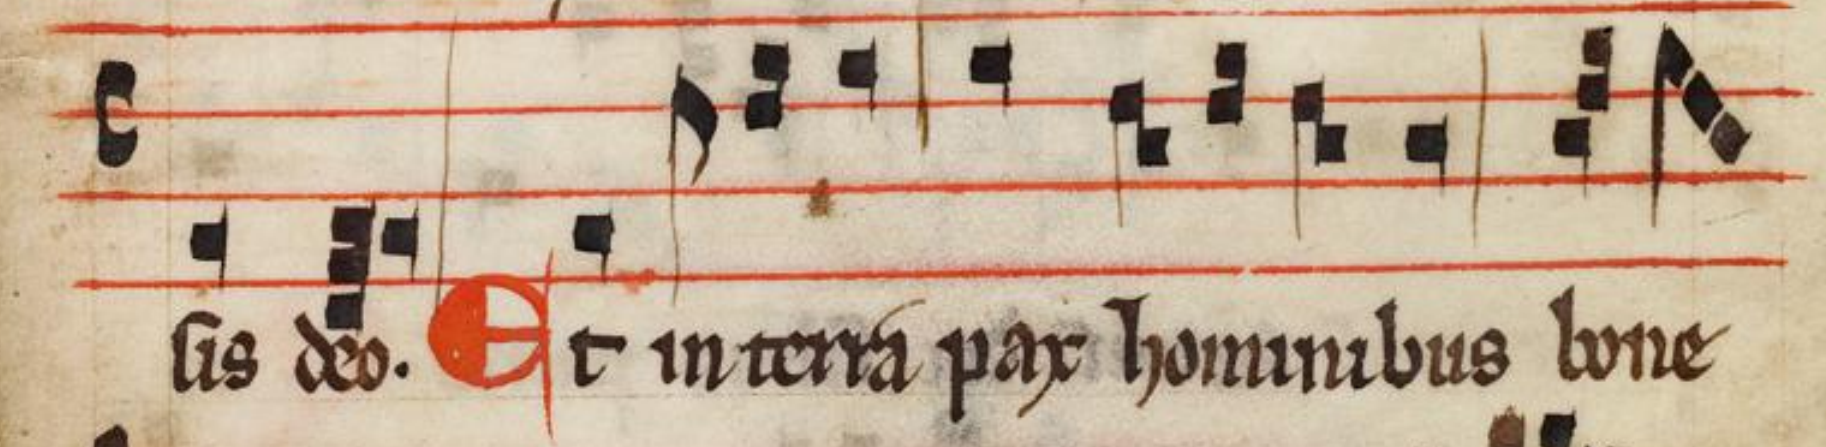 sis deo. Et in terra pax hominibus bone